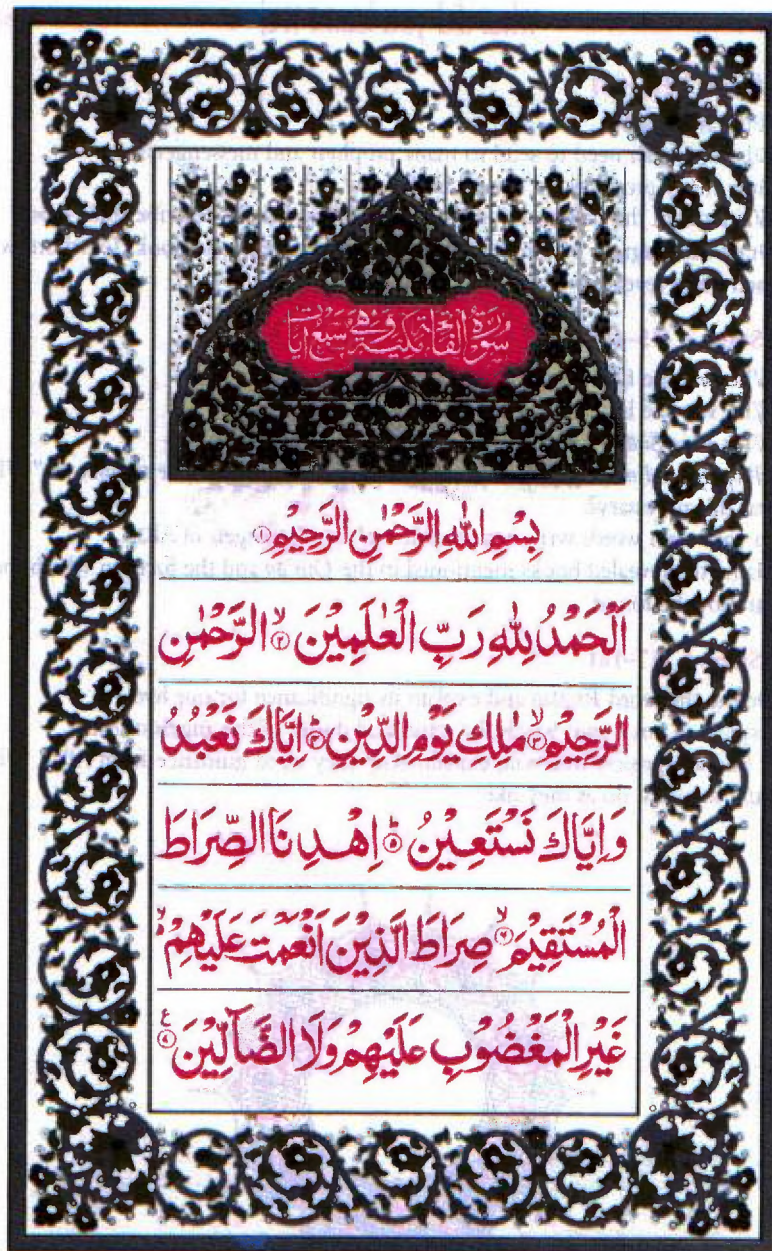 سُوْرَةُ الْفَاتِحَةِ مَكِّيَّةٌ وَهِيَ سَبْعُ اٰيَاتٍ
بِسْمِ اللّٰهِ الرَّحْمٰنِ الرَّحِيْمِ ۝۱
اَلْحَمْدُ لِلّٰهِ رَبِّ الْعٰلَمِيْنَ ۙ۝۲ الرَّحْمٰنِ
الرَّحِيْمِ ۙ۝۳ مٰلِكِ يَوْمِ الدِّيْنِ ؕ۝۴ اِيَّاكَ نَعْبُدُ
وَاِيَّاكَ نَسْتَعِيْنُ ؕ۝۵ اِهْدِنَا الصِّرَاطَ
الْمُسْتَقِيْمَ ۙ۝۶ صِرَاطَ الَّذِيْنَ اَنْعَمْتَ عَلَيْهِمْ ۙ
غَيْرِ الْمَغْضُوْبِ عَلَيْهِمْ وَلَا الضَّآلِّيْنَ ۝۷ ع